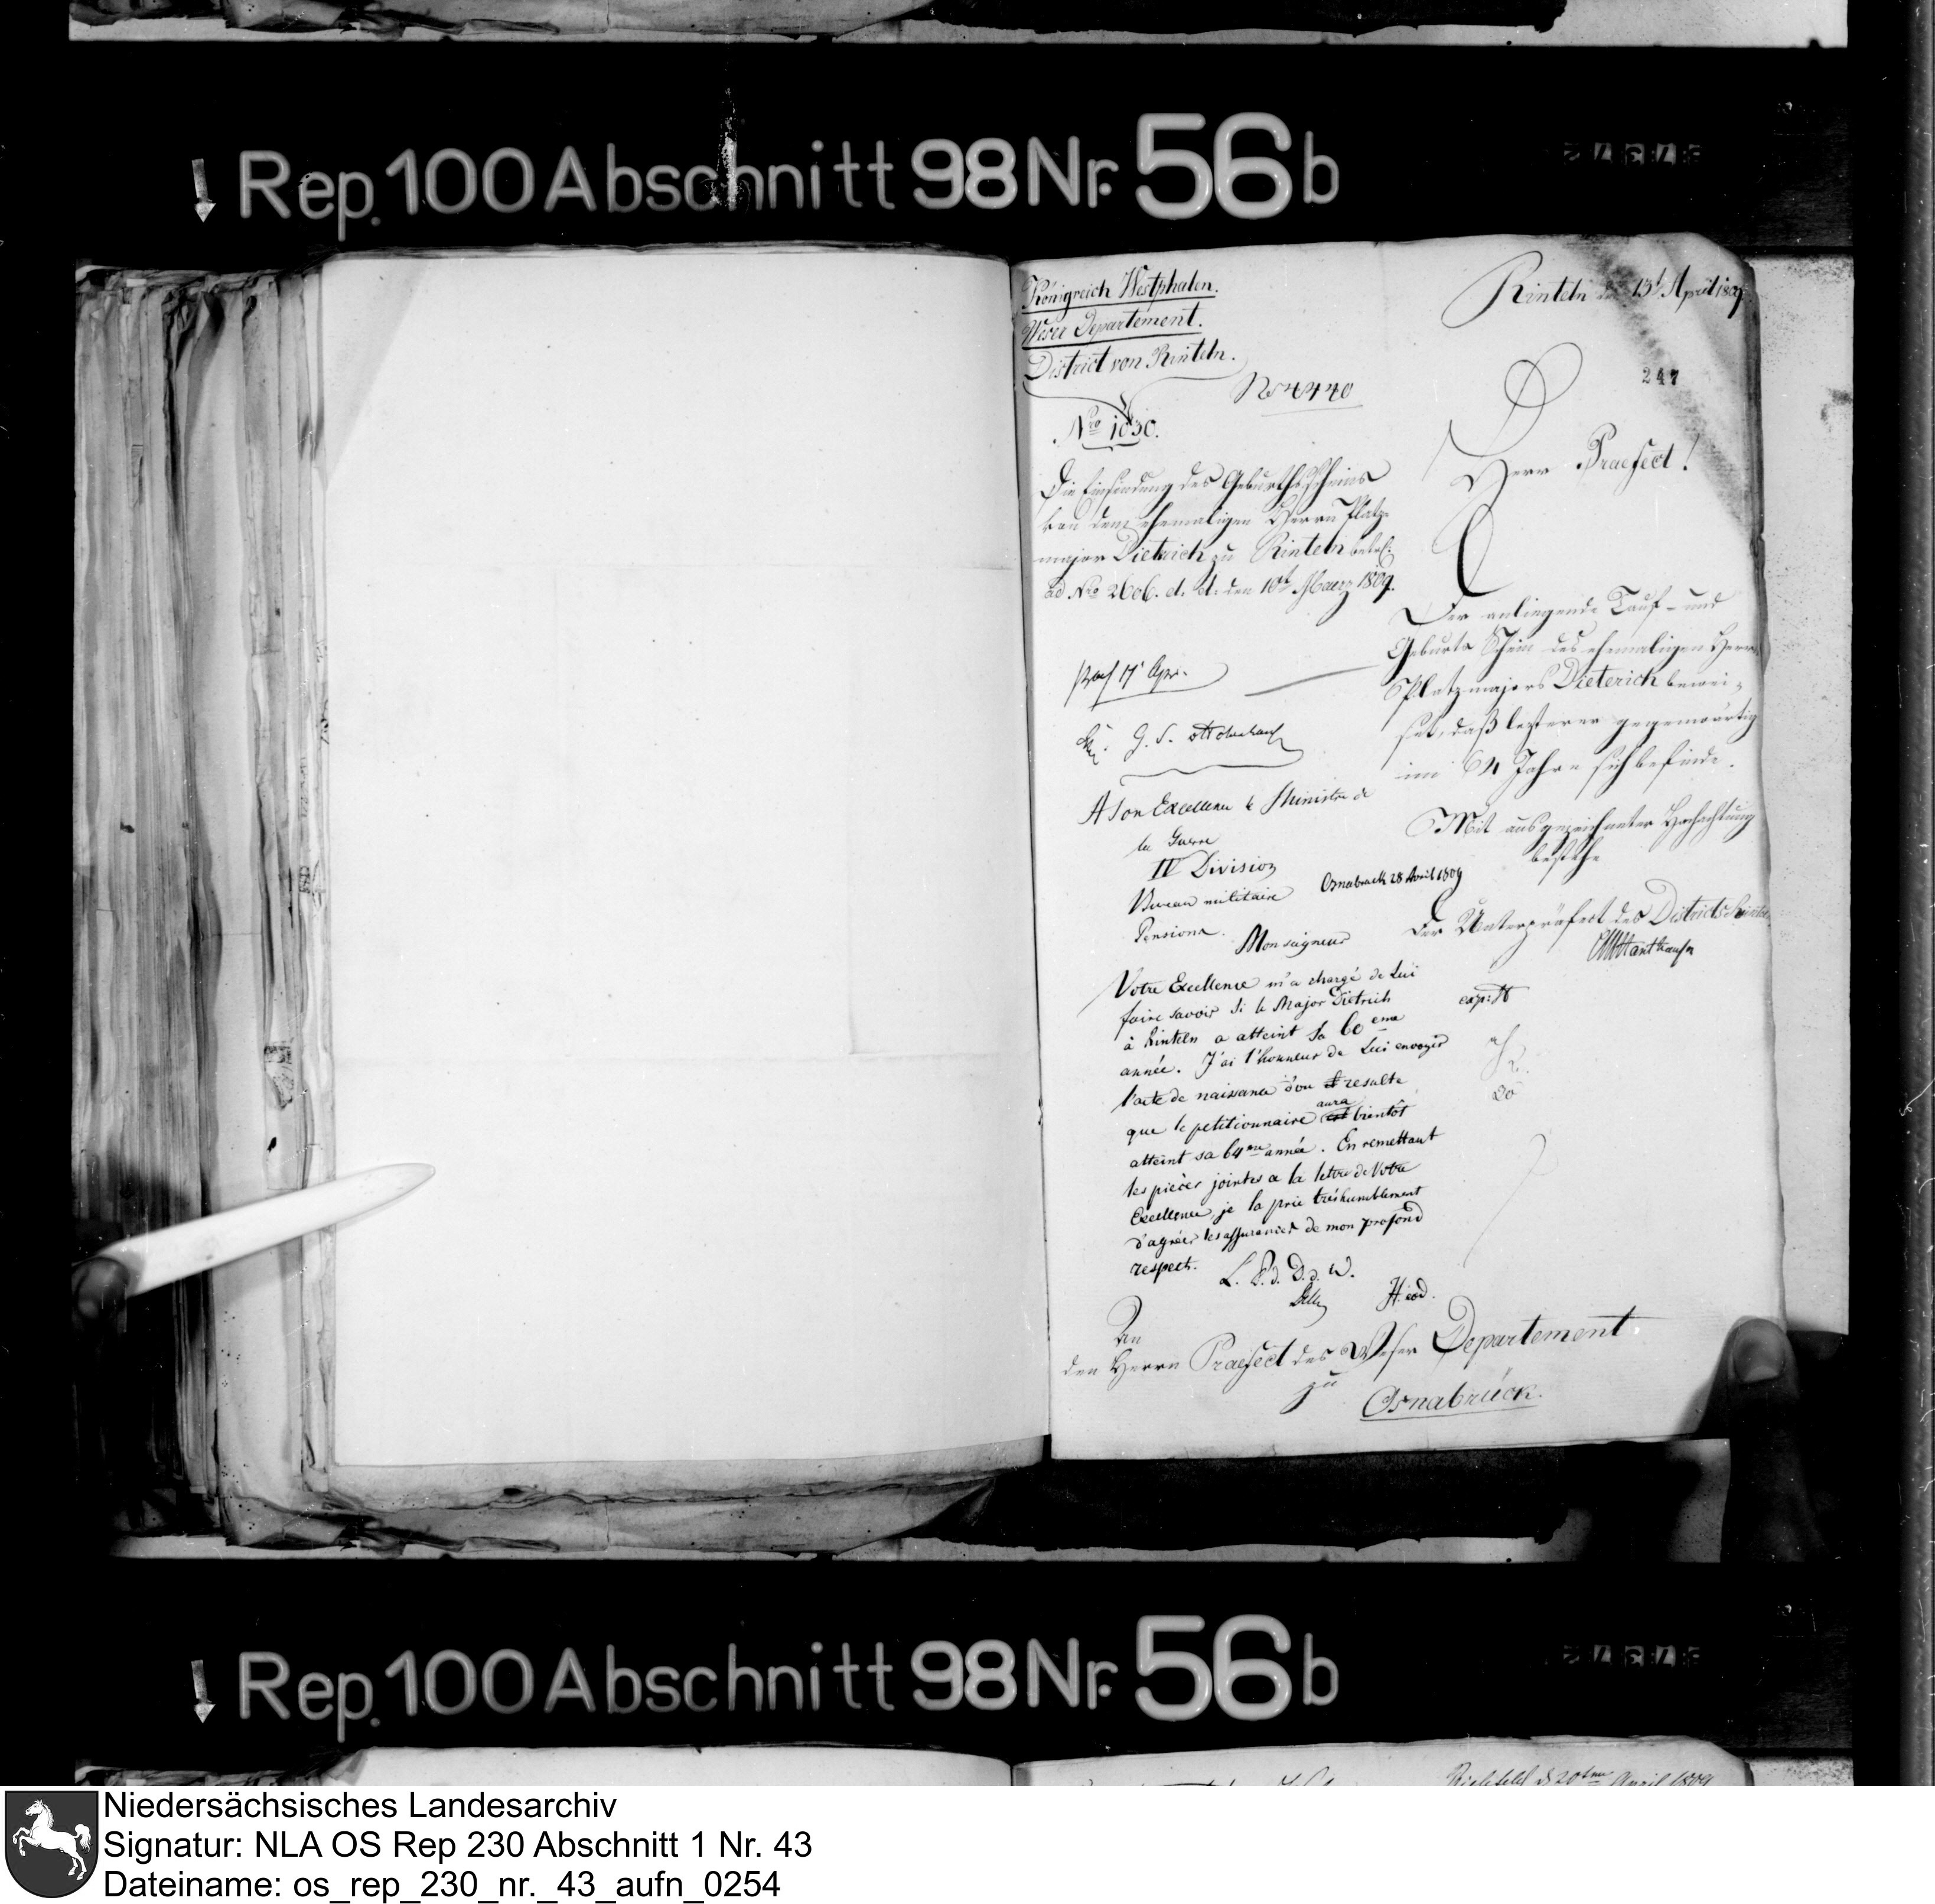 Rep. 100 Abschnitt 98 Nr. 56b
Königreich Westphalen.
Weser Departement.
District von Rinteln.
No 4440
Nro 1030.
Rinteln den 13t April 1809.
247
Die Einsendung des Geburthsscheins
von dem ehemaligen Herrn Platz-
major Dietrich zu Rinteln betr.
ad Nro 2606. d. d. den 10t Maerz 1809.
Herr Praefect!
Der anliegende Tauf- und
Geburts Schein des ehemaligen Herrn
Platzmajors Dieterich bewei-
set, daß lezterer gegenwärtig
im 64 Jahre sich befinde.
Mit ausgezeichneter Hochachtung
bestehe
Der Unterpräfect des Districts Rinteln
17 Apr.
G. S.
A Son Excellence le Ministre de
la Guerre
IV Division
Bureau militaire
Pensions.
Osnabruck 28 Avril 1809
Monseigneur
Votre Excellence m'a chargé de Lui
faire savoir si le Major Dietrich
à Rinteln a atteint sa 60eme
année. J'ai l'honneur de Lui envoyer
l'acte de naissance d'ou il resulte
que le petitionnaire est aura bientôt
atteint sa 64me année. En remettant
les pièces jointes a la lettre de Votre
Excellence, je la prie très humblement
d'agréer les assurances de mon profond
respect.
L. P. d. D. d. W.
An
den Herrn Praefect des Weser Departement
zu
Osnabrück.
Rep. 100 Abschnitt 98 Nr. 56b
Bielefeld 20 April 1809
Niedersächsisches Landesarchiv
Signatur: NLA OS Rep 230 Abschnitt 1 Nr. 43
Dateiname: os_rep_230_nr._43_aufn_0254